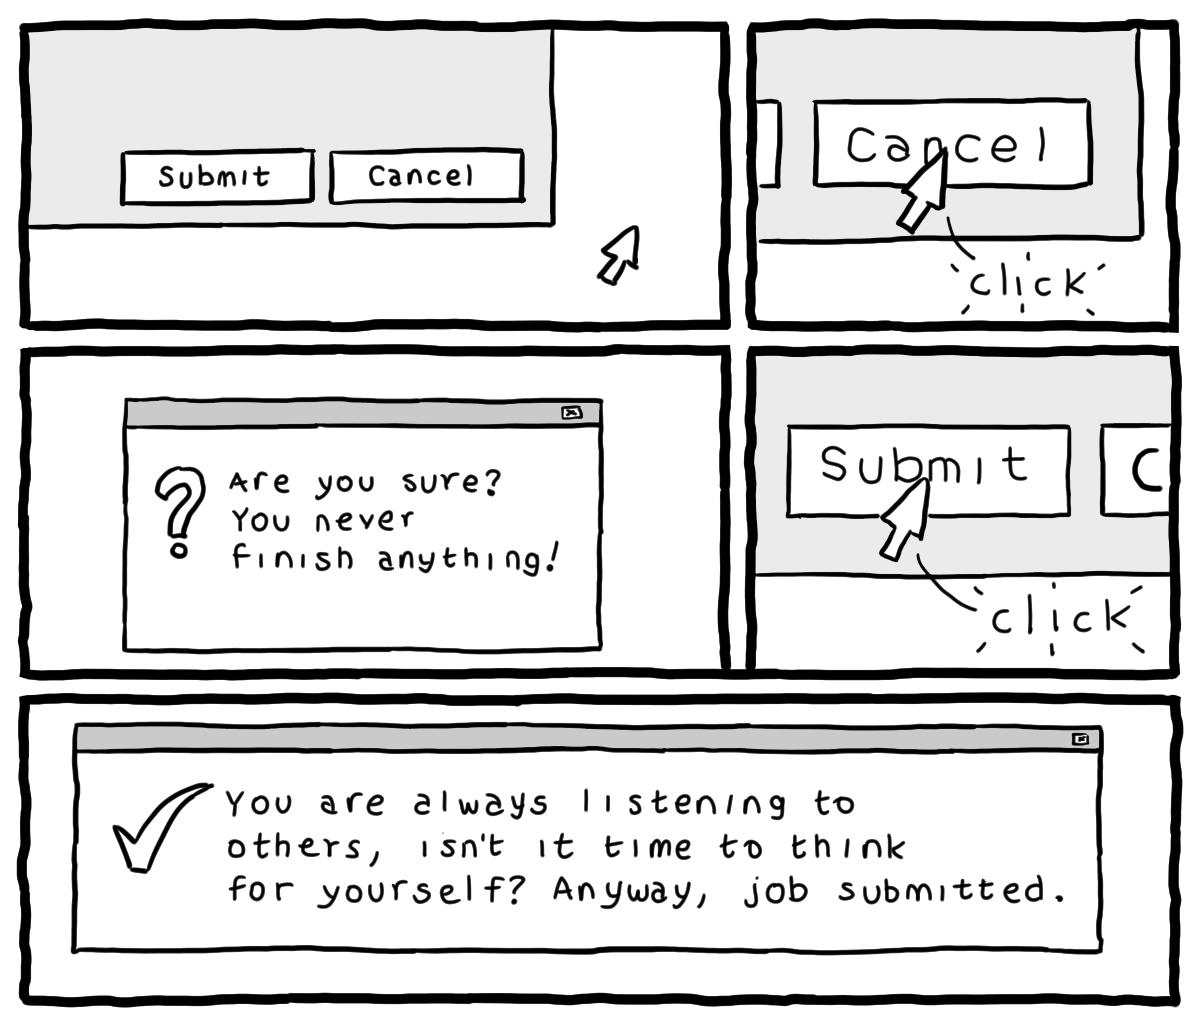 Submit Cancel
Cancel
click
Are you sure?
You never
finish anything!
Submit C
click
You are always listening to
others, isn't it time to think
for yourself? Anyway, job submitted.